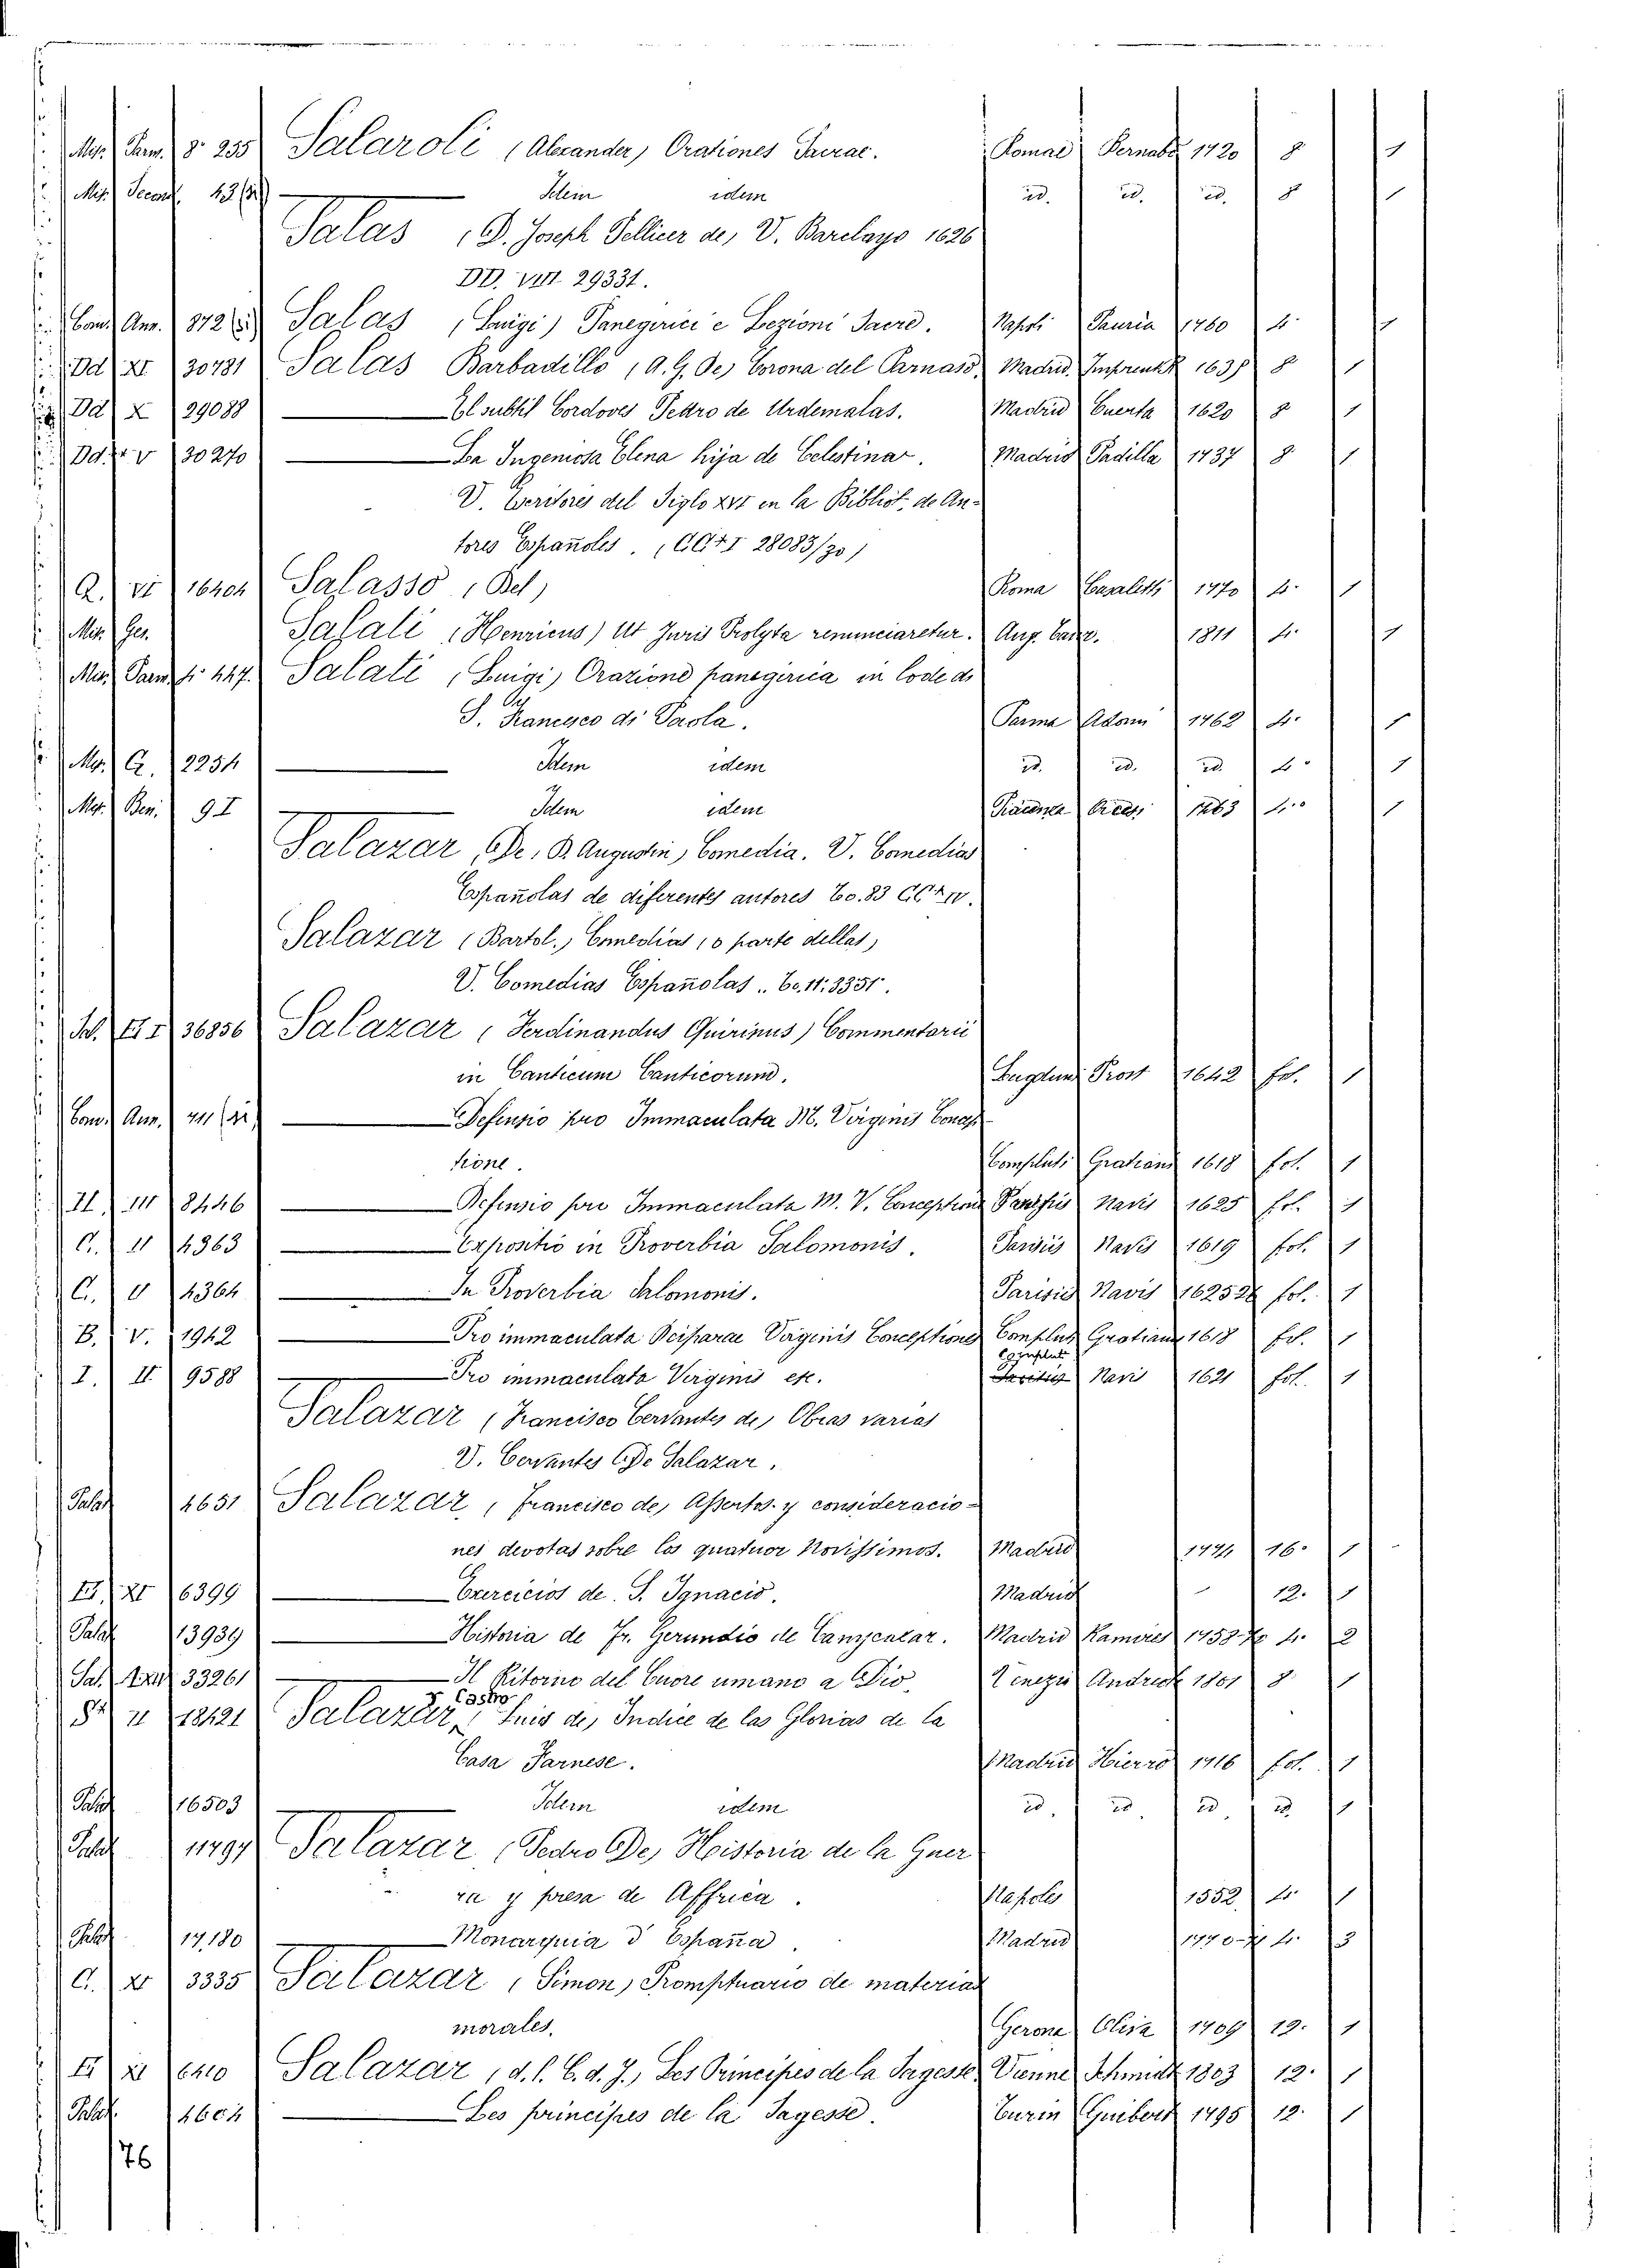 Misc. Parm. 8º 235 Salaroli (Alexander) Orationes Sacrae. Romae Bernabò 1720 8 1
Misc. Second. Idem idem id. id. id. 8 1
Salas (D. Joseph Pellicer de) V. Barclayo 1626
DD. VIII 29331.
Com. Ann. 372 Salas (Luigi) Panegirici e Lezioni Sacre. Napoli Pauria 1760 4º 1
Dd XI 30781 Salas Barbadillo (A. G. De) Corona del Parnaso, Madrid. 1635 8 1
Dd X 29088 El subtil Cordoves Pedro de Urdemalas. Madrid Cuesta 1620 8 1
Dd. V 30270 La Ingeniosa Elena hija de Celestina. Madrid Padilla 1737 8 1
V. Escritores del Siglo XVI en la Bibliot. de Au-
tores Españoles. 28083/30)
Q. VI Salasso (Bel) Roma Casaletti 1770 4º 1
Mis. Ger. Salati (Henricus) Ut Juris Prolyta renunciaretur. Aug. Taur. 1811 4º 1
Mis. Parm. 4º 447. Salati (Luigi) Orazione panegirica in lode di
S. Francesco di Paola. Parma 1762 4º 1
Misc. Q. 2254 Idem idem id. id. id. 4º 1
Misc. Ben. 9 I Idem idem 4º 1
Salazar (De, D. Augustin) Comedia. V. Comedias
Españolas de diferentes autores To. 83
Salazar (Bartol.) Comedias (8 parte dellas)
V. Comedias Españolas.. To. 11. 3351.
36856 Salazar (Ferdinandus Quirinus) Commentarii
in Canticum Canticorum. Lugduni Prost 1642 fol. 1
Com. Ann. Defensio pro Immaculata M. Virginis Concep-
tione. Compluti Gratiani 1618 fol. 1
II. III 8446 Defensio pro Immaculata M. V. Conceptione Parisiis Navis 1625 fol. 1
C. II 4363 Expositio in Proverbia Salomonis. Parisiis Navis 1619 fol. 1
C. II 4364 In Proverbia Salomonis. Parisiis Navis 1625 26 fol. 1
B. V. 1942 Pro immaculata Deiparae Virginis Conceptione Complut. Gratiani 1618 fol. 1
I. II 9588 Pro immaculata Virginis etc. Complut Navis 1621 fol. 1
Salazar (Francisco Cervantes de) Obras varias
V. Cervantes (De Salazar.
Palat 4651 Salazar, (Francisco de) Affectos y consideracio-
nes devotas sobre los quatuor Novissimos. Madrid 16º 1
XI 6399 Exercicios de S. Ignacio. Madrid - 12. 1
Palat 13939 Historia de Fr. Gerundio de Campazar. Madrid Ramirez 1758-70 4º 2
Sal. 33261 Il Ritorno del Cuore umano a Dio Venezia Andreola 1801 8 1
18421 Salazar y Castro, (Luis de) Indice de las Glorias de la
Casa Farnese. Madrid Hierro 1716 fol. 1
Palat 16503 Idem idem id. id. id. id. 1
Palat 11797 Salazar (Pedro De) Historia de la Guer
ra y presa de Affrica. Napoles 1552 4º 1
Palat 17,180 Monarquia d'España. Madrid 1770-71 4º 3
C. XI 3335 Salazar (Simon) Promptuario de materias
morales. Gerona Oliva 1709 12. 1
XI 6410 Salazar (d. l. C. d. J.) Les Principes de la Sagesse, Vienne Schmidt 1803 12. 1
Palat. 4604 Les principes de la Sagesse. Turin Guibert 1795 12. 1
76